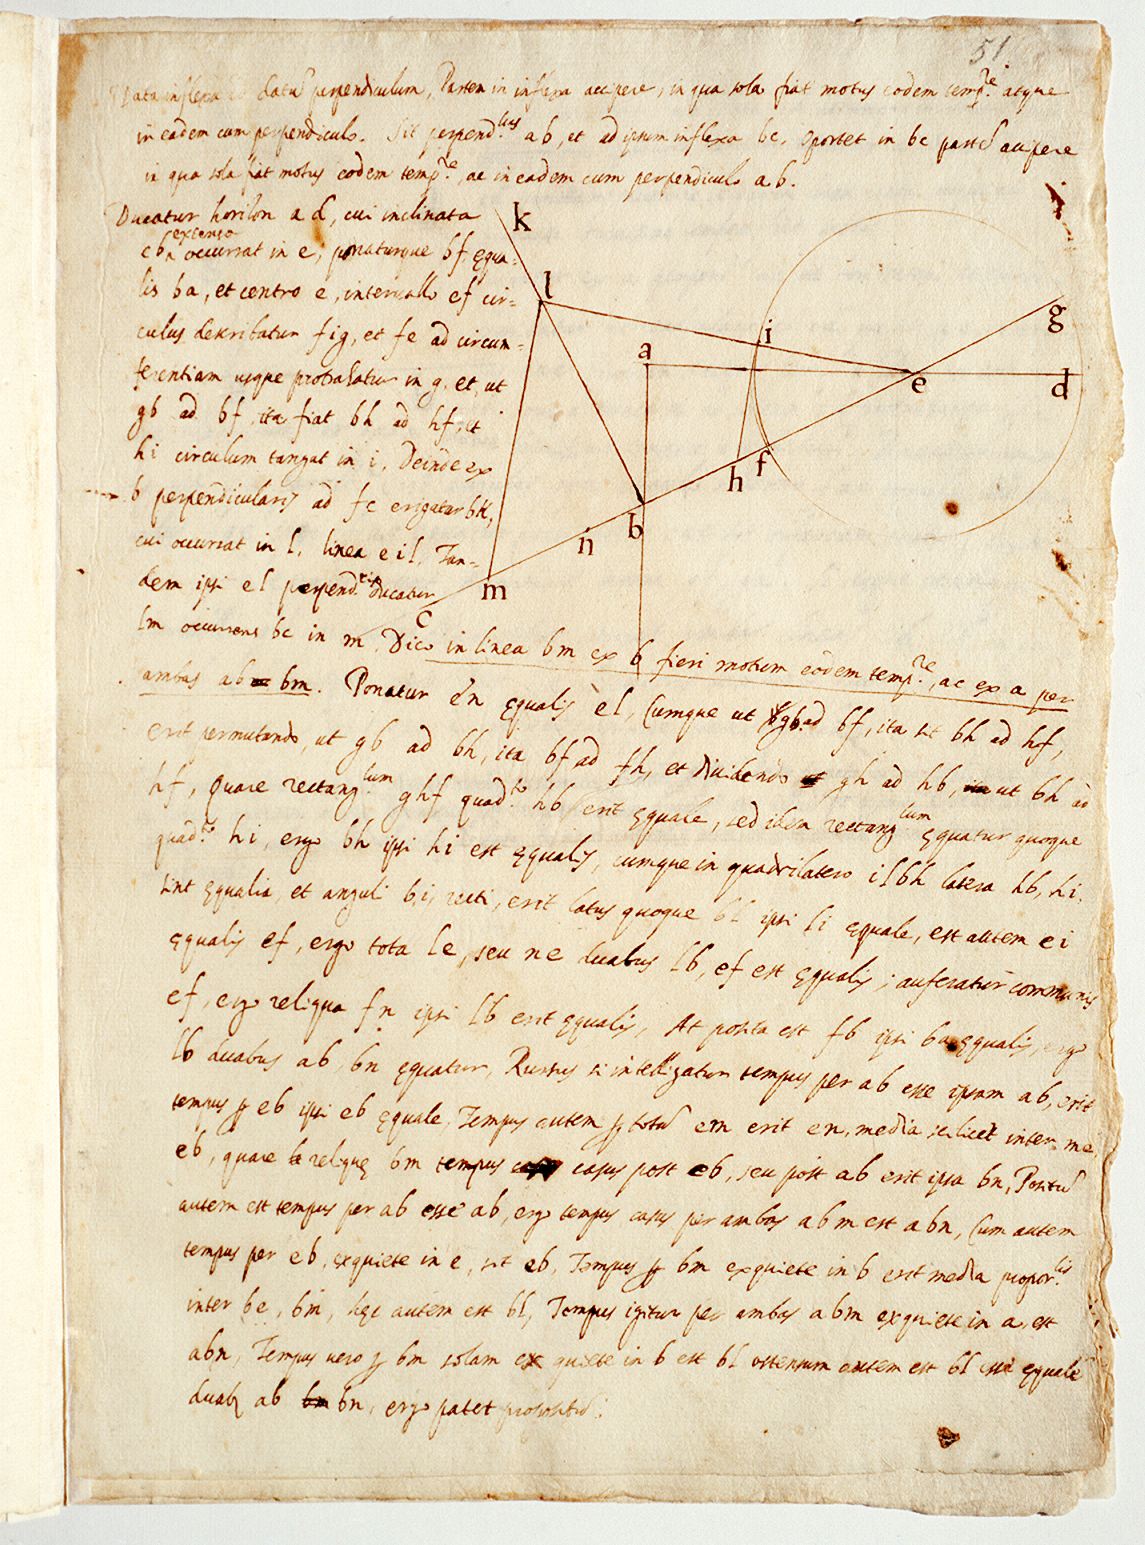 51
Data inflexa ad datū perpendiculum, Partem in inflexa accipere, in qua sola fiat motus eodem temp.re atque
in eadem cum perpendiculo. Sit perpend.lus ab, et ad ipsum inflexa bc. Oportet in bc partē accipere
in qua sola fiat motus eodem temp.re, ac in eadem cum perpendiculo ab.
Ducatur horizon ad, cui inclinata
cb extenso occurrat in e; ponaturque bf ęqua-
lis ba, et centro e, intervallo ef cir-
culus describatur fig, et fe ad circum-
ferentiam usque protrahatur in g, et, ut
gb ad bf, ita fiat bh ad hf, et
hi circulum tangat in i, Deinde ex
b perpendicularis ad fc erigatur bk,
cui occurrat in l, linea eil, Tan-
dem ipsi el perpend.ris ducatur
lm occurrens bc in m. Dico in linea bm ex b fieri motum eodem temp.re, ac ex a per
ambas ab bm. Ponatur en ęqualis el, Cumque ut gb ad bf, ita sit bh ad hf,
erit permutando, ut gb ad bh, ita bf ad fh, et dividendo gh ad hb, ut bh ad
hf, quare rectang.lum ghf quad.to hb erit ęquale, sed idem rectang.lum ęquatur quoque
quad.to hi, ergo bh ipsi hi est ęqualis, cumque in quadrilatero ilbh latera hb, hi,
sint ęqualia, et anguli b, i, recti, erit latus quoque bl ipsi li ęquale, est autem ei
ęqualis ef, ergo tota le, seu ne duabus lb, ef est ęqualis; auferatur communis
ef, ergo reliqua fn ipsi lb erit ęqualis, At posita est fb ipsi ba ęqualis, ergo
lb duabus ab, bn ęquatur, Rursus si intelligatur tempus per ab esse ipsam ab, erit
tempus p eb ipsi eb ęquale, Tempus autem p totā em erit en, media scilicet inter me,
eb, quare relique bm tempus casus post eb, seu post ab erit ipsa bn, Positū
autem est tempus per ab esse ab, ergo tempus casus per ambas abm est abn, Cum autem
tempus per eb, ex quiete in e, sit eb, Tempus p bm ex quiete in b erit media propor.lis
inter be, bm, hęc autem est bl, Tempus igitur per ambas abm ex quiete in a, est
abn, Tempus vero p bm solam ex quiete in b est bl ostensum autem est bl esse ęquale
duabq ab bn, ergo patet propositū.
k
l
i
g
a
e
d
h
f
b
n
m
c